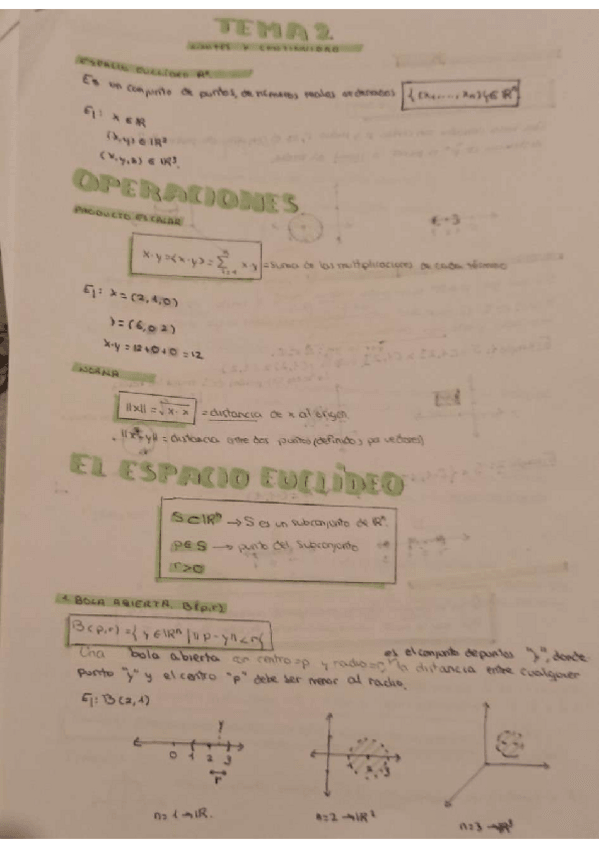 TEMA 2.
LÍMITES Y CONTINUIDAD
ESPACIO EUCLÍDEO Rⁿ
Es un conjunto de puntos, de números reales ordenados {(x₁,...,xₙ)} ∈ ℝⁿ
Ej: x ∈ ℝ
(x,y) ∈ ℝ²
(x,y,z) ∈ ℝ³.
OPERACIONES
PRODUCTO ESCALAR
x·y = = suma de las multiplicaciones de cada término
Ej: x = (2,1,0)
y = (6,0,2)
x·y = 12+0+0 = 12
NORMA
||x|| = √x·x = distancia de x al origen
= distancia entre dos puntos (definidos por vectores)
EL ESPACIO EUCLÍDEO
S⊂ℝⁿ → S es un subconjunto de ℝⁿ
p∈S → punto del subconjunto
r>0
1. BOLA ABIERTA. B(p,r)
B(p,r) = { y ∈ ℝⁿ | ||p - y|| < r}
Una bola abierta en centro=p y radio=r es el conjunto de puntos "y", donde la distancia entre cualquier
punto "y" y el centro "p" debe ser menor al radio.
Ej: B(2,1)
0 1 2 3
r
1 2 3
n=1 → ℝ.
n=2 → ℝ²
n=3 → ℝ³